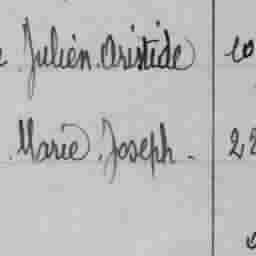 Julien. Aristide 10
Marie. Joseph. 22